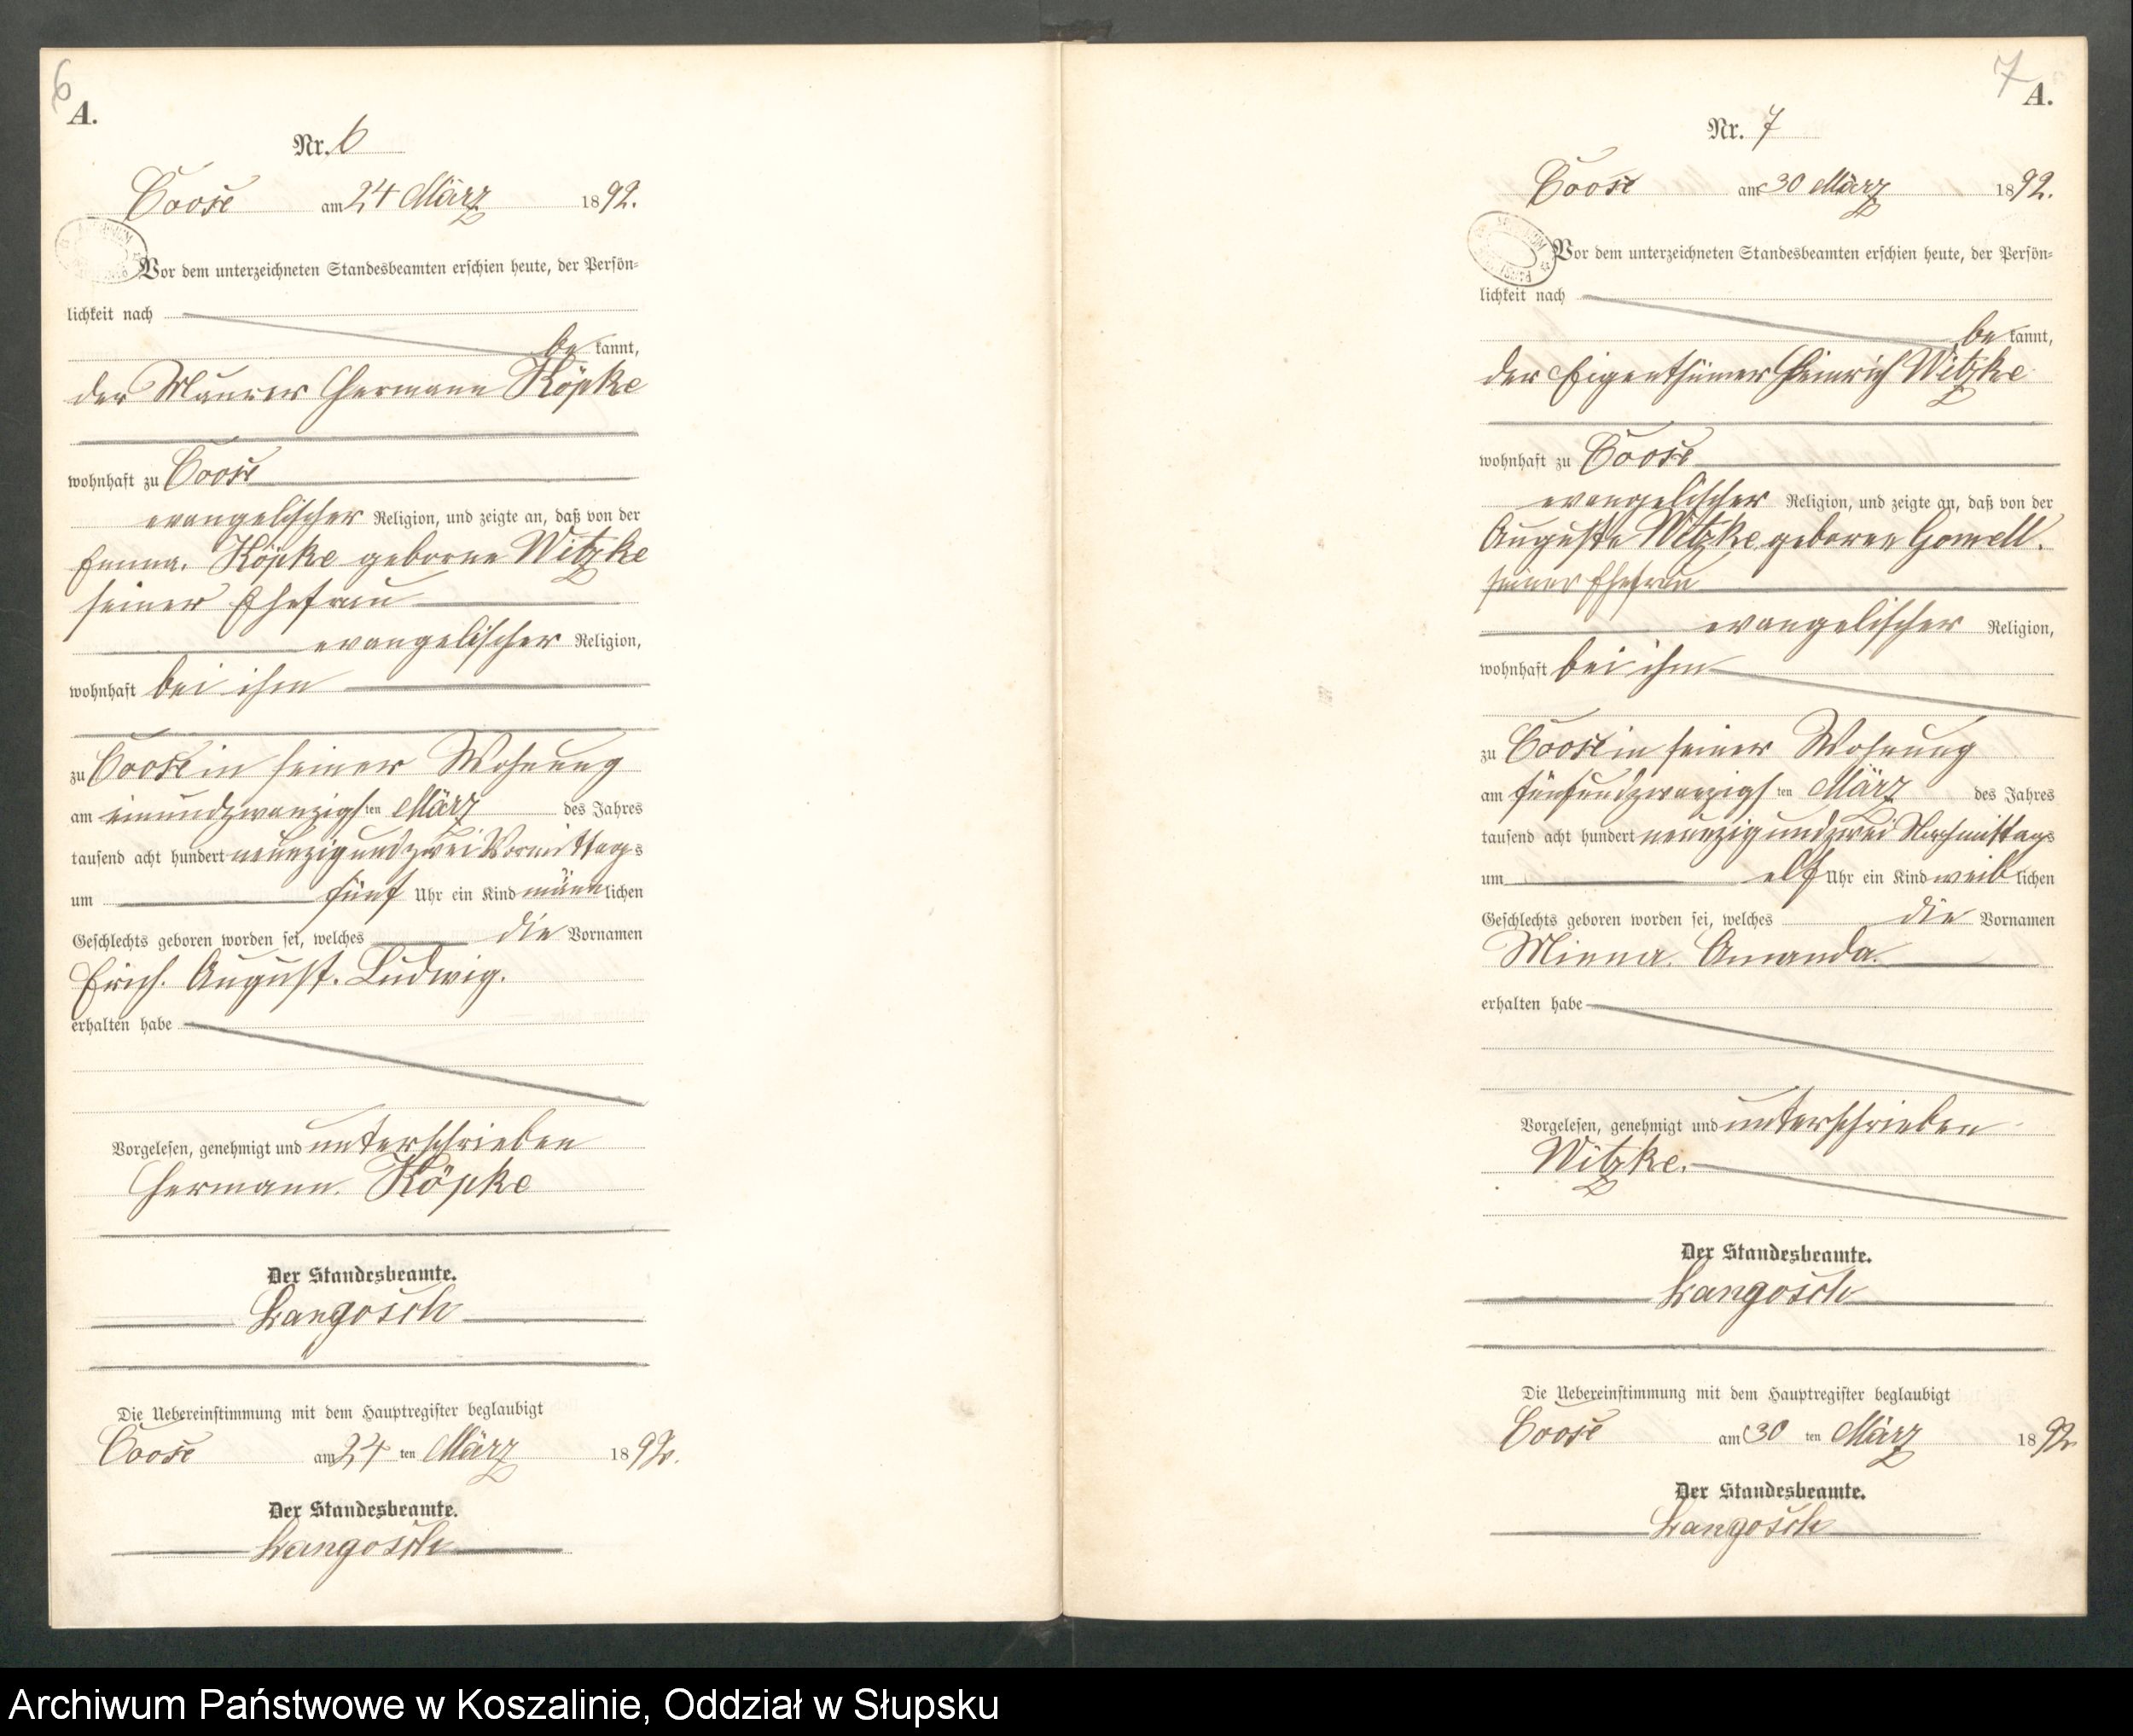 6
A.
Nr. 6
Coose am 24 März 1892.
Vor dem unterzeichneten Standesbeamten erschien heute, der Persön-
lichkeit nach
be kannt,
der Maurer Hermann Köpke
wohnhaft zu Coose
evangelischer Religion, und zeigte an, daß von der
Emma. Köpke geborne Witzke
seiner Ehefrau
evangelischer Religion,
wohnhaft bei ihm
zu Coose in seiner Wohnung
am einundzwanzigsten März des Jahres
tausend acht hundert neunzig und zwei Vormittags
um fünf Uhr ein Kind männlichen
Geschlechts geboren worden sei, welches die Vornamen
Erich. August. Ludwig.
erhalten habe
Vorgelesen, genehmigt und unterschrieben
Hermann. Köpke
Der Standesbeamte.
Langosch
Die Uebereinstimmung mit dem Hauptregister beglaubigt
Coose am 24 ten März 1892.
Der Standesbeamte.
Langosch
7
A.
Nr. 7
Coose am 30 März 1892.
Vor dem unterzeichneten Standesbeamten erschien heute, der Persön-
lichkeit nach
be kannt,
der Eigenthümer Heinrich Witzke
wohnhaft zu Coose
evangelischer Religion, und zeigte an, daß von der
Auguste Witzke geborne Gomell.
seiner Ehefrau
evangelischer Religion,
wohnhaft bei ihm
zu Coose in seiner Wohnung
am fünfundzwanzigsten März des Jahres
tausend acht hundert neunzig und zwei Nachmittags
um elf Uhr ein Kind weiblichen
Geschlechts geboren worden sei, welches die Vornamen
Minna. Amanda.
erhalten habe
Vorgelesen, genehmigt und unterschrieben
Witzke.
Der Standesbeamte.
Langosch
Die Uebereinstimmung mit dem Hauptregister beglaubigt
Coose am 30 ten März 1892
Der Standesbeamte.
Langosch
Archiwum Państwowe w Koszalinie, Oddział w Słupsku